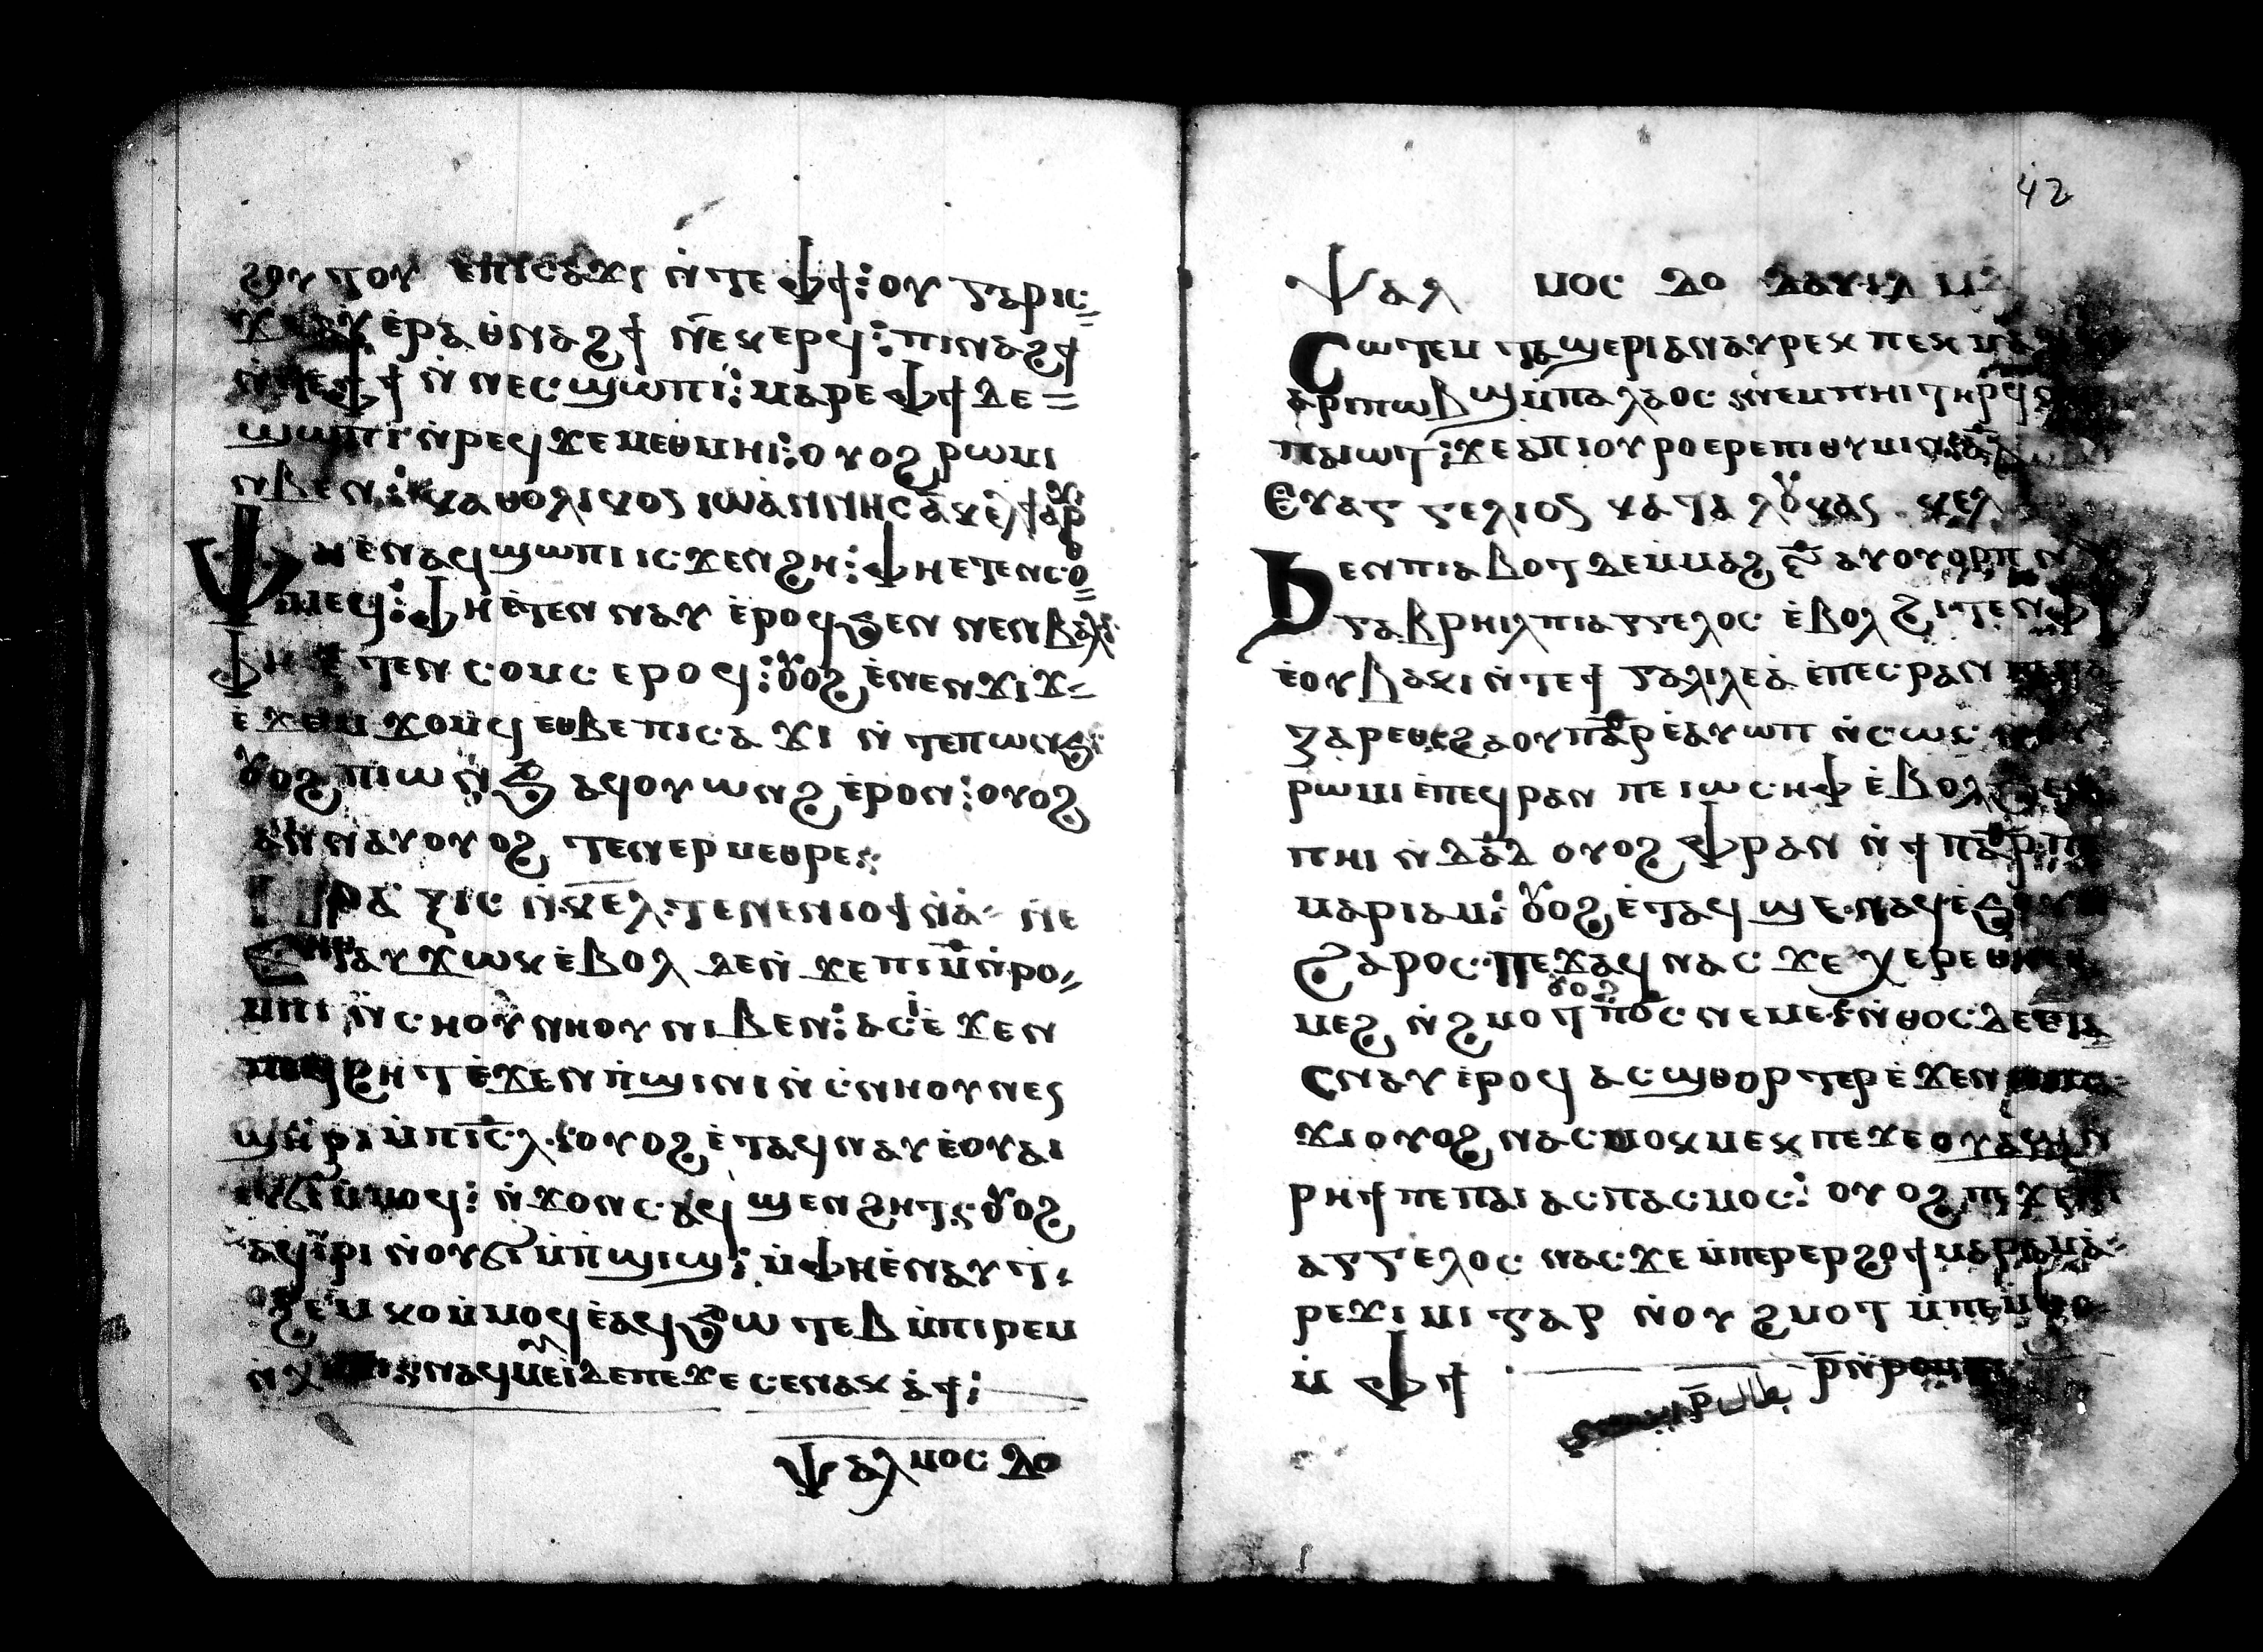 ϩⲟⲩⲧⲟⲩ ⲉⲡⲓⲥⲁϫⲓ ⲛ̀ⲧⲉ ⲫϯ ⁝ ⲟⲩ ⲅⲁⲣⲓⲥ
ⲉ̀ⲣⲁⲑⲛⲁϩϯ ⲛ̄ⲉⲭⲉⲣϥ ⁝ ⲡⲓⲛⲁϩϯ
ⲛ̀ⲧⲉⲫϯ ⲛ̀ⲛⲉⲥϣⲱⲡⲓ ⁝ ⲙⲁⲣⲉ ⲫϯ ⲇⲉ
ϣⲱⲡⲓ ⲛ̀ⲣⲉϥϫⲉⲙⲉⲑⲙⲏⲓ ⁝ ⲟⲩⲟϩ ⲣⲱⲙⲓ
ⲛⲃⲉⲛ ⁝ ⲕⲁⲑⲟⲗⲓⲕⲟⲥ ⲓⲱⲁⲛⲛⲏⲥ ⲁ̄ ⲕⲉⲗ
ⲫⲏ ⲉ̀ⲛⲁϥϣⲱⲡⲓ ⲓⲥϫⲉⲛϩⲏ ⁝ ⲫⲏ ⲉⲧⲉⲛⲥⲟ
ⲑⲙⲉϥ ⁝ ⲫⲏ ⲉ̀ⲧⲉⲛⲛⲁⲩ ⲉ̀ⲣⲟϥ ϧⲉⲛ ⲛⲉⲛⲃⲁⲗ
ⲫⲏ ⲉ̀ⲧⲉⲛⲥⲟⲙⲥ ⲉⲣⲟϥ ⁝ ⲟⲩⲟϩ ⲉ̀ⲛⲉⲛϫⲓϫ
ⲉ̀ϫⲉⲙϫⲟⲙϥ ⲉⲑⲃⲉ ⲡⲓⲥⲁϫⲓ ⲛ̀ⲧⲉⲡⲱⲛϧ
ⲟⲩⲟϩ ⲡⲓⲱⲛϧ ⲁϥⲟⲩⲱⲛϩ ⲉ̀ⲣⲟⲛ ⁝ ⲟⲩⲟϩ
ⲁⲛⲛⲁⲩ ⲟⲩⲟϩ ⲧⲉⲛⲉⲣⲙⲉⲑⲣⲉ
ⲡⲣⲁⲝⲓⲥ ⲛ̀ⲕⲉⲗ ⲧⲉⲛⲉⲛⲓⲟϯ ⲛⲁ ⲛⲉ
ⲉⲧⲁⲩϫⲱⲕ ⲉ̀ⲃⲟⲗ ⲇⲉⲛ ϫⲉ ⲡⲓⲙ̄ ⲛ̀ⲣⲟ
ⲙⲡⲓ ⲛ̀ⲥⲛⲟⲩⲛⲏⲟⲩ ⲛⲓⲃⲉⲛ ⁝ ⲁⲥⲓ̀ ⲉ̀ϫⲉⲛ
ⲡⲉϥϩⲏⲧ ⲉ̀ϫⲉⲛ ⲡ̀ϣⲓⲛⲓ ⲛ̀ⲥ̀ⲛⲏⲟⲩ ⲛⲉⲥ
ϣⲏⲣⲓ ⲙ̀ⲡⲓⲥ̄ⲗ ⁝ ⲟⲩⲟϩ ⲉ̀ⲧⲁϥⲛⲁⲩ ⲉ̀ⲟⲩⲁⲓ
ⲉⲩϭⲓ ⲙ̀ⲙⲟϥ ⁝ ⲛ̀ϫⲟⲛⲥ ⲁϥϣⲉⲛϩⲏⲧⲥ ⲟⲩⲟϩ
ⲁϥⲓ̀ⲣⲓ ⲛ̀ⲟⲩϭⲓ ⲙ̀ⲡ̀ϣⲓϣ ⁝ ⲙ̀ⲫⲏ ⲉ̀ⲛⲁⲩϯ
ϩⲉⲙⲕⲟ ⲙ̀ⲙⲟϥ ⲉ̀ⲁϥϧⲱⲧⲉⲃ ⲙ̀ⲡⲓⲣⲉⲙ
ⲛ̀ⲭⲏⲙⲓ ⲛⲁϥⲙⲉⲓ ⲇⲉⲡⲉ ϫⲉ ⲥⲉⲛⲁⲕⲁϯ ⁝
ⲯⲁⲗⲙⲟⲥ ⲇⲟ
42
ⲯⲁⲗⲙⲟⲥ ⲇⲟ ⲇⲁⲩⲓⲇ ⲙ̄
ⲥⲱⲧⲉⲙ ⲧⲁϣⲉⲣⲓ ⲁⲛⲁⲩ ⲣⲉⲕ ⲡⲉⲕⲙⲁ
ⲁⲣⲓⲡⲱⲃϣ ⲙ̀ⲡⲁⲗⲁⲟⲥ ⲛⲉⲙ ⲡⲏⲓ ⲧⲏⲣϥ
ⲡⲁⲓⲱⲧ ⁝ ϫⲉ ⲁⲡⲓⲟⲩⲣⲟ ⲉⲣⲉⲡⲓⲑⲩⲙⲓⲛ
ⲉⲩⲁⲅⲅⲉⲗⲓⲟⲥ ⲕⲁⲧⲁ ⲗⲟⲩⲕⲁⲥ ⲕⲉⲗ
ϧⲉⲛ ⲡⲓⲁⲃⲟⲧ ⲇⲉ ⲙ̀ⲙⲁϩ ⲋ̄ ⲁⲩⲟⲩⲟⲣⲡ ⲛ
ⲅⲁⲃⲣⲏⲓⲗ ⲡⲓⲁⲅⲅⲉⲗⲟⲥ ⲉ̀ⲃⲟⲗ ϩⲓⲧⲉⲛ ⲫϯ
ⲉ̀ⲟⲩⲃⲁⲕⲓ ⲛ̀ⲧⲉϯ ⲅⲁⲗⲓⲗⲉⲁ̀ ⲉ̀ⲡⲉⲥⲣⲁⲛ ⲡⲉⲛⲁ
ⲍⲁⲣⲉⲑ ϩⲁ ⲟⲩⲡⲁⲣ ⲉ̀ⲁⲩⲱⲡ ⲛ̀ⲥⲱⲥ
ⲣⲱⲙⲓ ⲉ̀ⲡⲉϥⲣⲁⲛ ⲡⲉ ⲓⲱⲥⲏⲫ ⲉ̀ⲃⲟⲗ ϧⲉⲛ
ⲡⲏⲓ ⲛ̀ⲇⲁⲇ ⲟⲩⲟϩ ⲫⲣⲁⲛ ⲛ̀ϯⲡⲁⲣ ⲡⲉ
ⲙⲁⲣⲓⲁⲙ ⁝ ⲟⲩⲟϩ ⲉ̀ⲧⲁϥϣⲉ ⲛⲁϥ ⲉ̀ϧⲟⲩⲛ
ϩⲁⲣⲟⲥ ⲡⲉϫⲁϥ ⲛⲁⲥ ϫⲉ ⲭⲉⲣⲉ ⲑⲏⲉⲑ
ⲟⲩⲟϩ
ⲙⲉϩ ⲛ̀ϩⲙⲟⲧ ⲡ̄ⲟ̄ⲥ̄ ⲛⲉⲙⲉ ⁝ ⲛ̀ⲑⲟⲥ ⲇⲉ ⲉⲧⲁ
ⲥⲛⲁⲩ ⲉ̀ⲣⲟϥ ⲁⲥϣⲑⲟⲣⲧⲉⲣ ⲉ̀ϫⲉⲛ ⲡⲓⲥⲁ
ϫⲓ ⲟⲩⲟϩ ⲛⲁⲥⲙⲟⲕⲙⲉⲕ ⲡⲉ ϫⲉ ⲟⲩⲁϣⲛ
ⲣⲏϯ ⲡⲉ ⲡⲁⲓⲁⲥⲡⲁⲥⲙⲟⲥ ⁝ ⲟⲩⲟϩ ⲡⲉϫⲉ ⲡⲓ
ⲁⲅⲅⲉⲗⲟⲥ ⲛⲁⲥ ϫⲉ ⲙ̀ⲡⲉⲣⲉⲣϩⲟϯ ⲙⲁⲣⲓⲁⲙ ⲁ
ⲣⲉϫⲓⲙⲓ ⲅⲁⲣ ⲛ̀ⲟⲩϩⲙⲟⲧ ⲙ̀ⲡⲉⲙⲑⲟ
ⲙ̀ⲫϯ